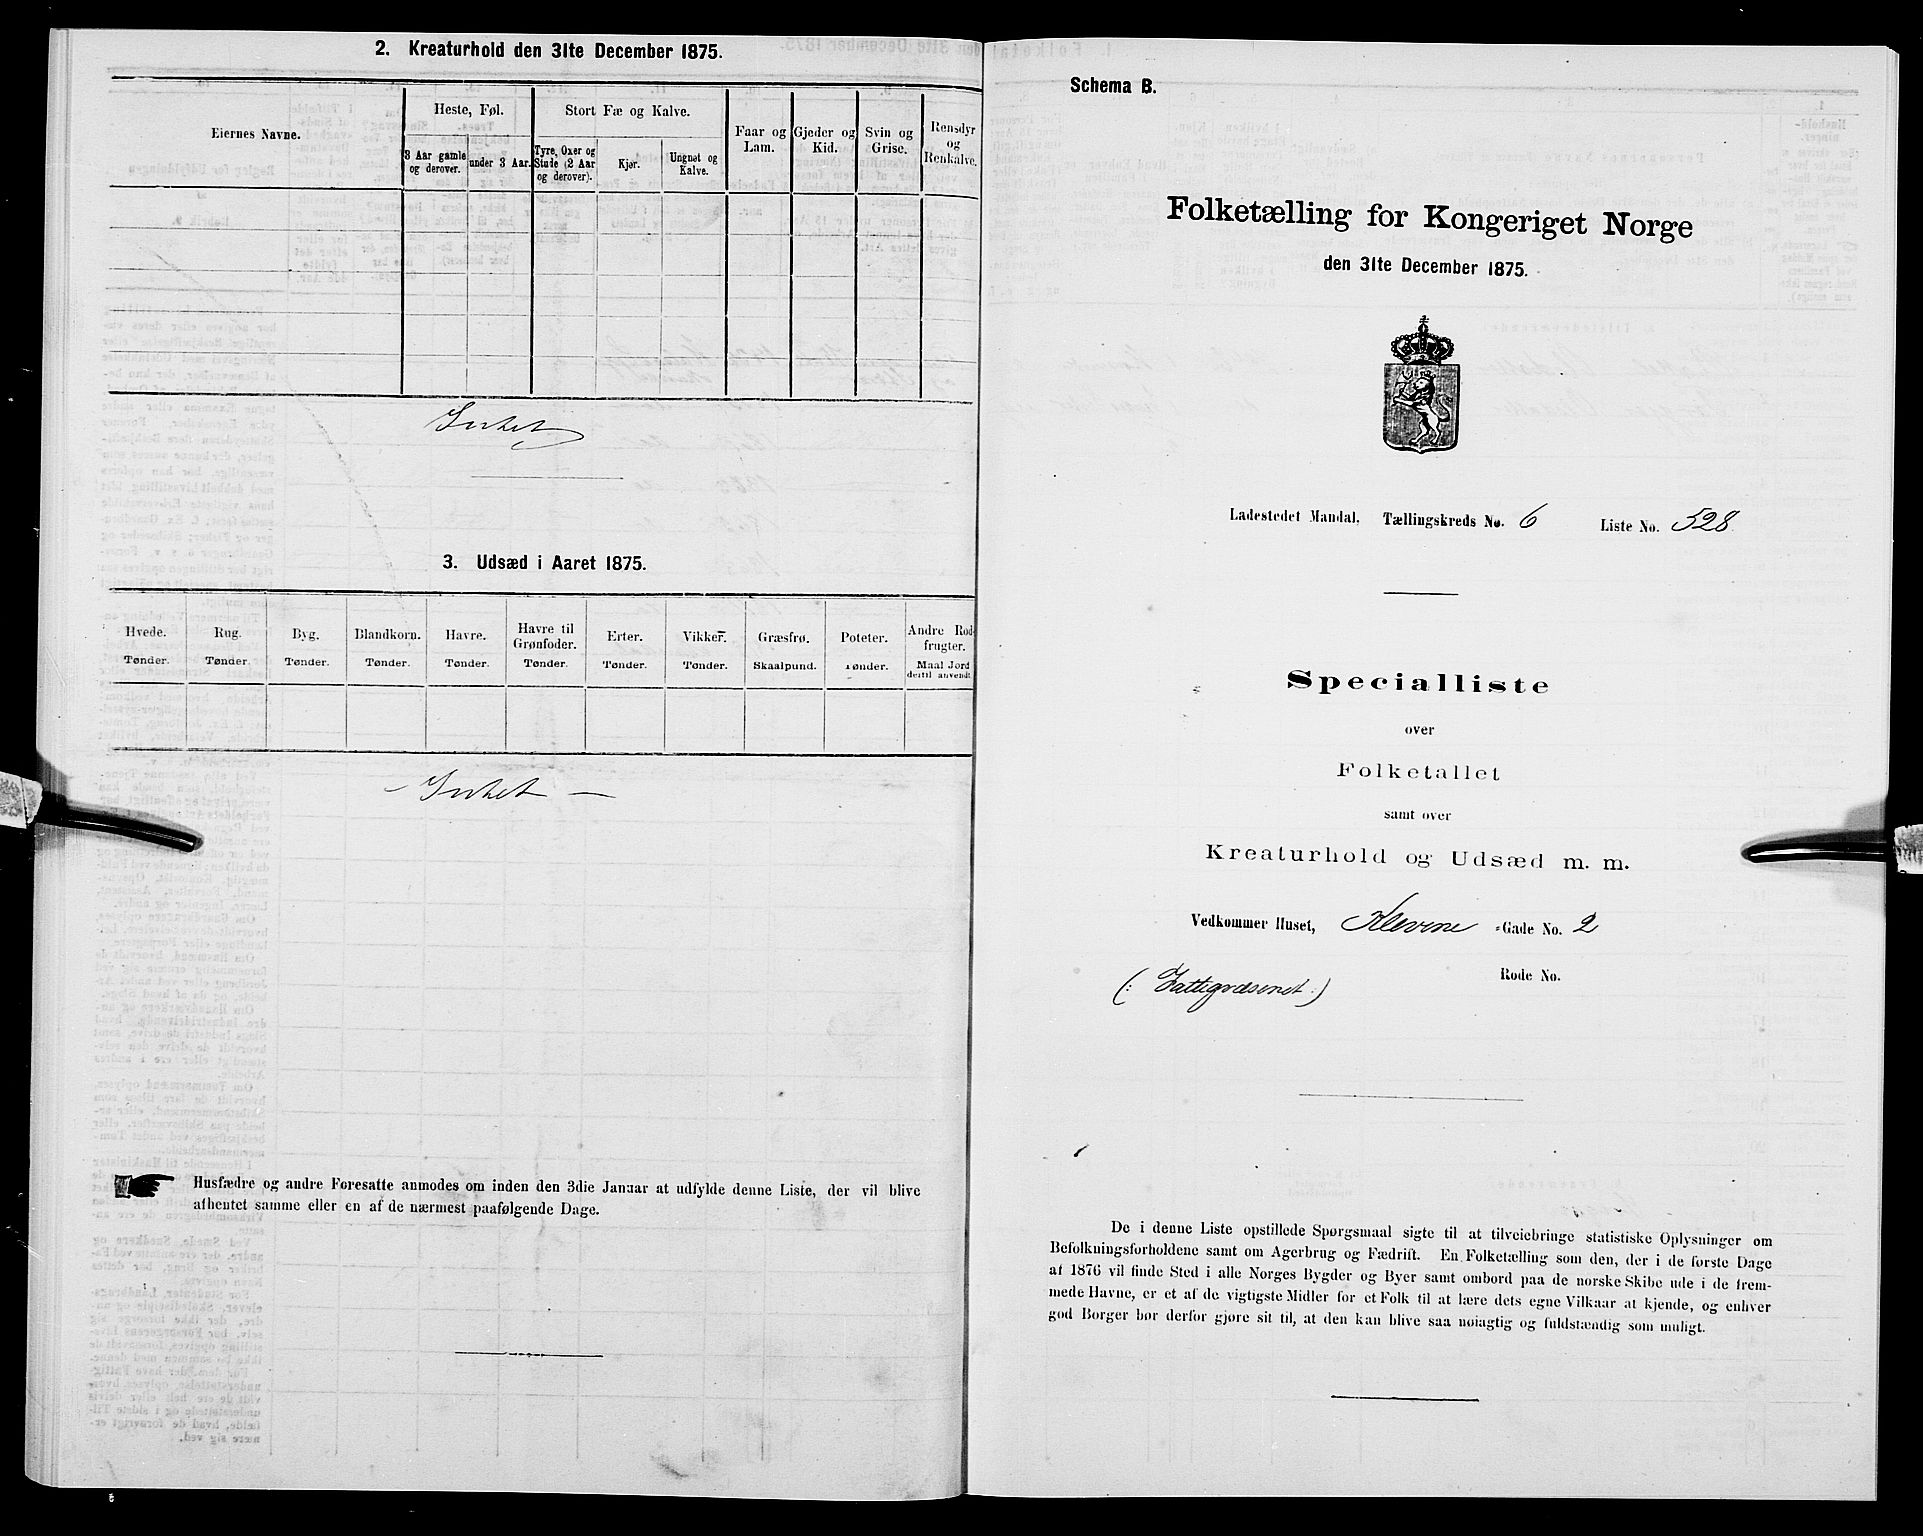 2. Kreaturhold den 31te December 1875.
Eiernes Navne.
Heste, Føl.
Stort Fæ og Kalve.
Faar og Lam.
Gjeder og Kid.
Svin og Grise.
Rensdyr og Renkalve.
3 Aar gamle og derover.
under 3 Aar.
Tyre, Oxer og Stude (2 Aar og derover).
Kjør.
Ungnøt og Kalve.
Intet
3. Udsæd i Aaret 1875.
Hvede. Rug. Byg. Blandkorn. Havre. Havre til Grønfoder. Erter. Vikker. Græsfrø. Poteter. Andre Rodfrugter.
Tønder. Tønder. Tønder. Tønder. Tønder. Tønder. Tønder. Tønder. Skaalpund. Tønder. Maal Jord dertil anvendt
— Intet —
Husfædre og andre Foresatte anmodes om inden den 3die Januar at udfylde denne Liste, der vil blive
afhentet samme eller en af de nærmest paafølgende Dage.
Schema B.
Folketælling for Kongeriget Norge
den 31te December 1875.
Ladestedet Mandal. Tællingskreds No. 6 Liste No. 528.
Specialliste
over
Folketallet
samt over
Kreaturhold og Udsæd m. m.
Vedkommer Huset, Klevene -Gade No. 2
(: Fattigvæsenet :) Rode No.
De i denne Liste opstillede Spørgsmaal sigte til at tilveiebringe statistiske Oplysninger om
Befolkningsforholdene samt om Agerbrug og Fædrift. En Folketælling som den, der i de første Dage
af 1876 vil finde Sted i alle Norges Bygder og Byer samt ombord paa de norske Skibe ude i de frem-
mede Havne, er et af de vigtigste Midler for et Folk til at lære dets egne Vilkaar at kjende, og enhver
god Borger bør derfor gjøre sit til, at den kan blive saa nøiagtig og fuldstændig som muligt.